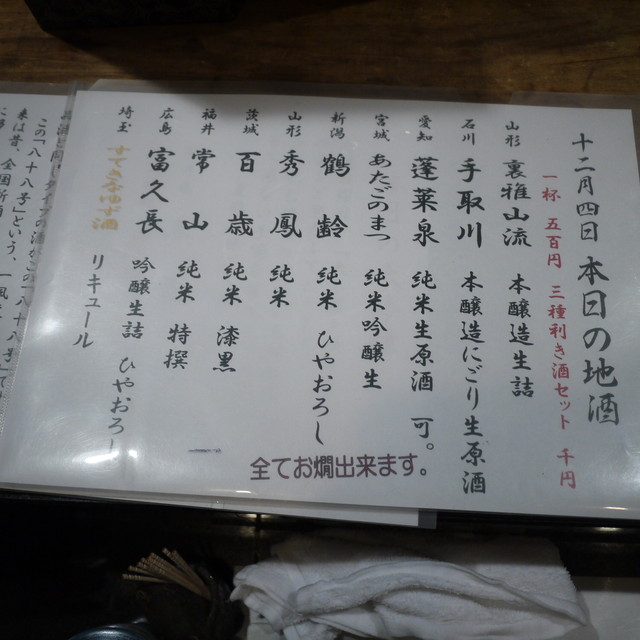 十二月四日 本日の地酒
一杯 五百円 三種利き酒セット 千円
山形 裏雅山流 本醸造生詰
石川 手取川 本醸造にごり生原酒
愛知 蓬莱泉 純米生原酒 可。
宮城 あたごのまつ 純米吟醸生
新潟 鶴齢 純米 ひやおろし
山形 秀鳳 純米
茨城 百歳 純米 漆黒
福井 常山 純米 特撰
広島 富久長 吟醸生詰 ひやおろし
埼玉 すてきなゆず酒 リキュール
全てお燗出来ます。
この「八十八号」という、一風